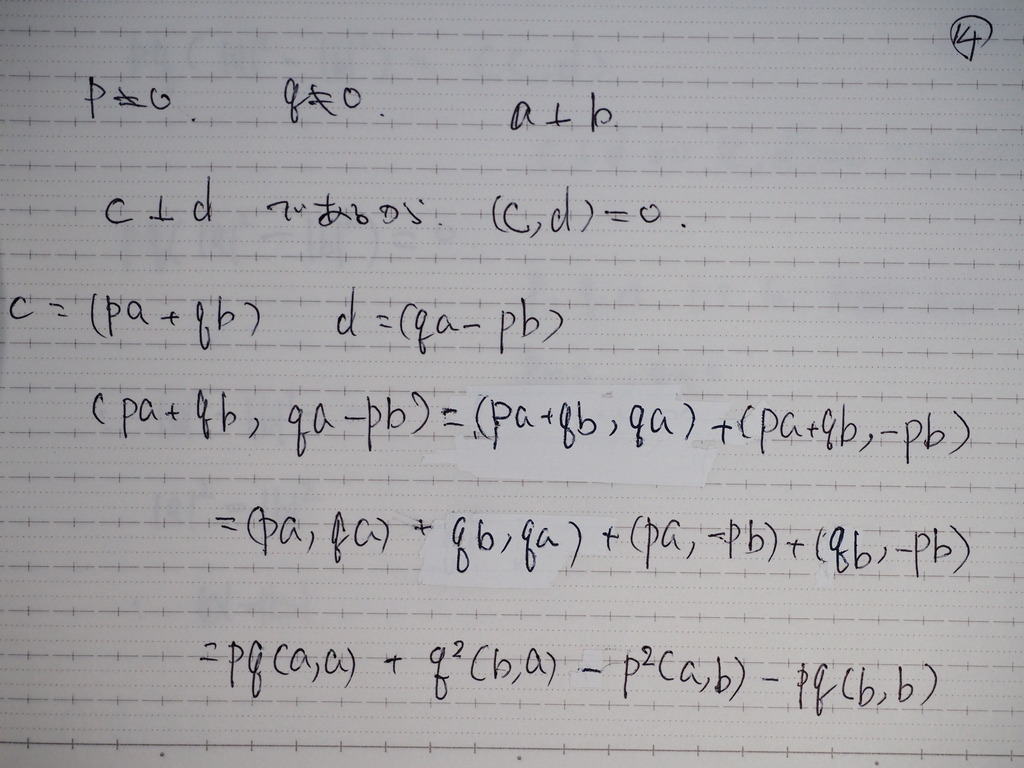 ⑭
p≠0. q≠0. a⊥b.
c⊥d であるから. (c,d)=0.
c=(pa+qb) d=(qa-pb)
(pa+qb, qa-pb)=(pa+qb, qa)+(pa+qb, -pb)
=(pa, qa) + qb, qa)+(pa, -pb)+(qb, -pb)
=pq(a,a) + q²(b,a) - p²(a,b) - pq(b,b)